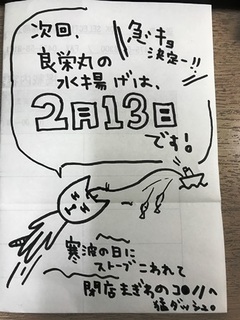 次回、
急キョ
決定ー!!
良栄丸の
水揚げは、
2月13日
です!
寒波の日に
ストーブこわれて
閉店まぎわのコ○リへ
猛ダッシュ。